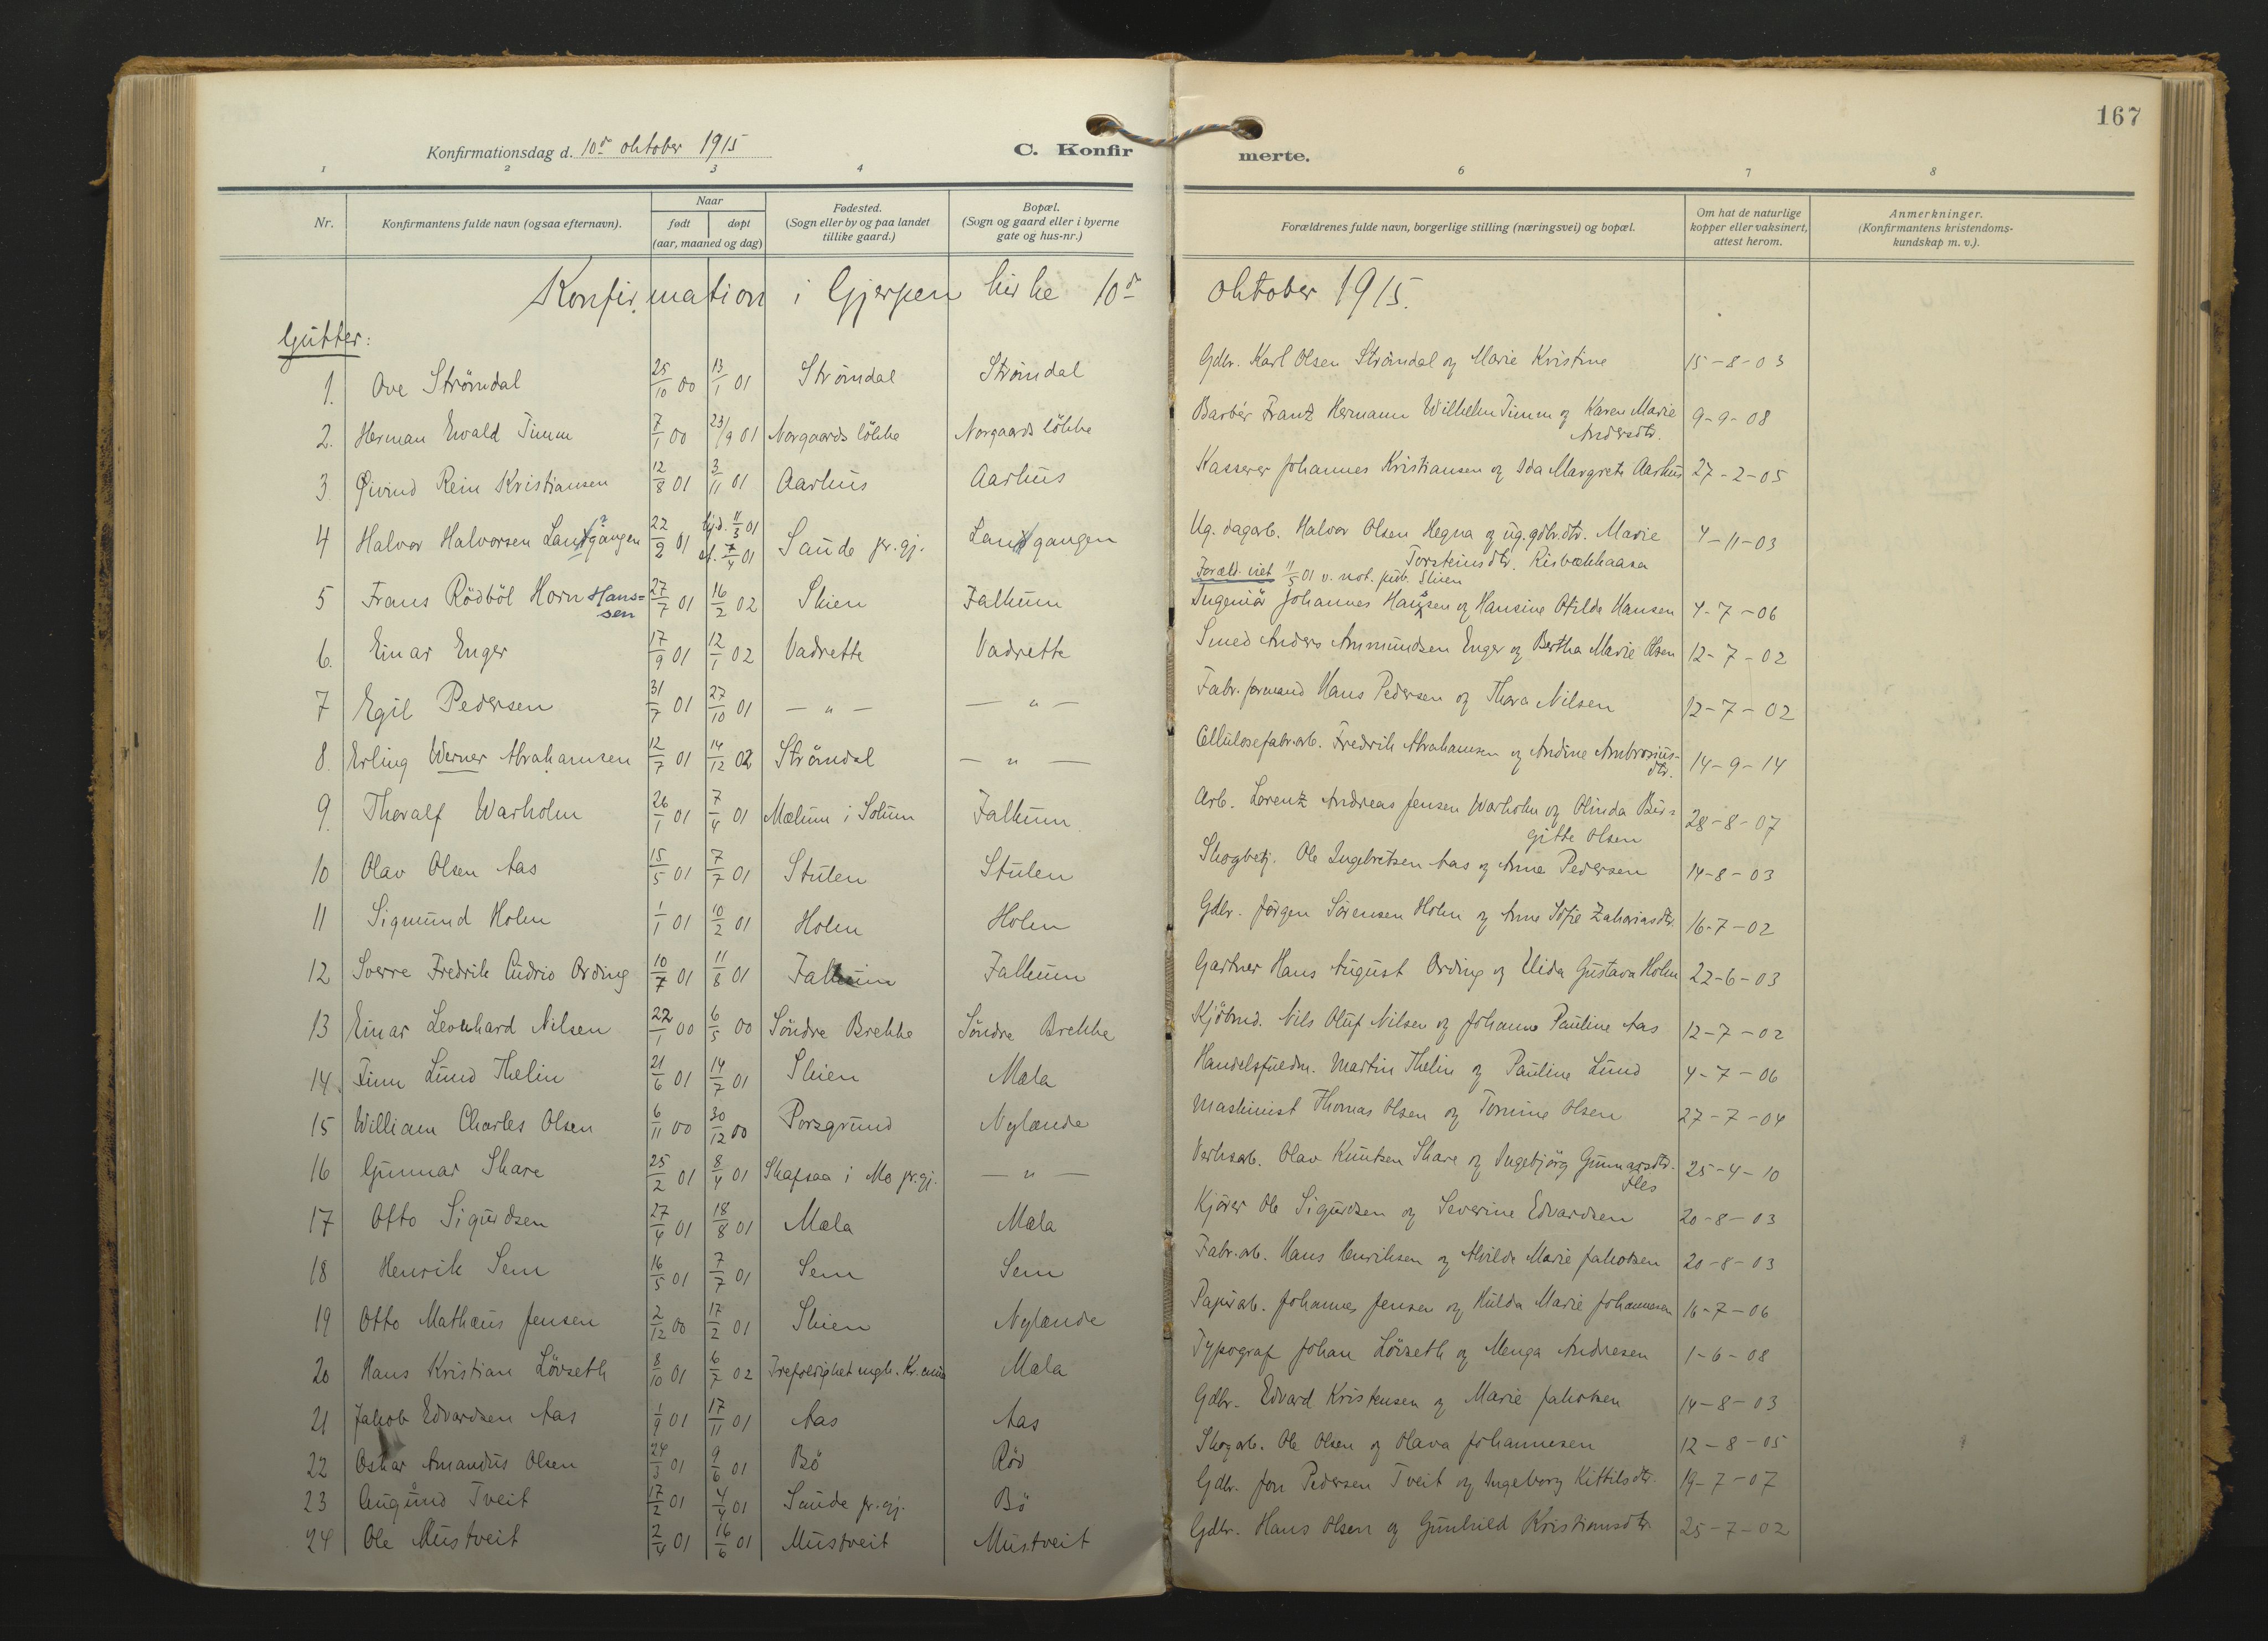 167
Konfirmationsdag d. 10de oktober 1915 C. Konfirmerte.
1 2 3 4 6 7 8
Nr. Konfirmantens fulde navn (ogsaa efternavn). Naar født døpt (aar, maaned og dag) Fødested. (Sogn eller by og paa landet tillike gaard.) Bopæl. (Sogn og gaard eller i byerne gate og hus-nr.) Forældrenes fulde navn, borgerlige stilling (næringsvei) og bopæl. Om hat de naturlige kopper eller vaksinert, attest herom. Anmerkninger. (Konfirmantens kristendoms-kundskap m. v.).
Konfirmation i Gjerpen kirke 10de oktober 1915.
Gutter:
1. Ove Strömdal 25/10 00 13/1 01 Strömdal Strömdal Gdbr. Karl Olsen Strömdal og Marie Kristine 15-8-03
2. Herman Ewald Timm 7/1 00 23/9 01 Norgaardslökke Norgaardslökke Barbér Franz Hermann Wilhelm Timm og Karen Marie Andersdtr. 9-9-08
3. Øivind Rein Kristiansen 12/8 01 3/11 01 Aarhus Aarhus Kasserer Johannes Kristiansen og Ida Margrete Aarhus 27-2-05
4 Halvor Halvorsen Langangen 22/2 01 hjd. 11/3 01 st. 7/4 01 Saude pr.gj. Langangen Ug. dagarb. Halvor Olsen Hegna og ug. gdbr.dtr. Marie Torsteinsdtr. Risbækkaasa 4-11-03
Foræld. viet 11/5 01 v. not. pub. Skien
5 Frans Rödböl Horn Hanssen 27/7 01 16/2 02 Skien Falkum Ingeniör Johannes Hanssen og Hansine Otilde Hansen 4-7-06
6. Einar Enger 17/9 01 12/1 02 Vadrette Vadrette Smed Anders Ammundsen Enger og Bertha Marie Olsen 12-7-02
7 Egil Pedersen 31/7 01 27/10 01 — " — — " — Fabr. formand Hans Pedersen og Thora Nilsen 12-7-02
8. Erling Werner Abrahamsen 12/7 01 14/12 02 Strömdal — " — Cellulosefabr.arb. Fredrik Abrahamsen og Andine Ambrosiusdtr. 14-9-14
9. Thoralf Warholm 26/1 01 7/4 01 Mælum i Solum Falkum Arb. Lorenz Andreas Jensen Warholm og Olinda Birgitte Olsen 28-8-07
10 Olav Olsen Aas 15/5 01 7/7 01 Stulen Stulen Skogbetj. Ole Ingebretsen Aas og Anne Pedersen 14-8-03
11 Sigmund Holm 1/1 01 10/2 01 Holm Holm Gdbr. Jörgen Sörensen Holm og Anne Sofie Zakariasdtr. 16-7-02
12 Sverre Fredrik Cudrio Ording 10/7 01 11/8 01 Falkum Falkum Gartner Hans August Ording og Elida Gustava Holm 22-6-03
13 Einar Leonhard Nilsen 22/1 00 6/5 00 Söndre Brekke Söndre Brekke Kjöbmd. Nils Oluf Nilsen og Johanne Pauline Aas 12-7-02
14. Finn Lund Thelin 21/6 01 14/7 01 Skien Mæla Handelsfuldm. Martin Thelin og Pauline Lund 4-7-06
15 William Charles Olsen 6/11 00 30/12 00 Porsgrund Nylænde Maskinist Thomas Olsen og Tomine Olsen 27-7-04
16 Gunnar Skare 25/2 01 8/4 01 Skafsaa i Mo pr.gj. — " — Verksarb. Olav Knutsen Skare og Ingebjörg Gunnarsdtr. 25-4-10
17 Otto Sigurdsen 27/4 01 18/8 01 Mæla Mæla Kjörer Ole Sigurdsen og Severine Edvardsen 20-8-03
18 Henrik Sem 16/5 01 7/7 01 Sem Sem Fabr.arb. Hans Henriksen og Alvilde Marie Jakobsen 20-8-03
19 Otto Mathæus Jensen 2/12 00 17/2 01 Skien Nylænde Papirarb. Johannes Jensen og Hulda Marie Johannesen 16-7-06
20 Hans Kristian Lövseth 8/10 01 6/7 02 Trefoldighet mgh. Kr.ania Mæla Typograf Johan Lövseth og Menga Andresen 1-6-08
21 Jakob Edvardsen Aas 1/9 01 17/11 01 Aas Aas Gdbr. Edvard Kristensen og Marie Jakobsen 14-8-03
22 Oskar Amandus Olsen 24/3 01 9/6 01 Bö Röd Skogarb. Ole Olsen og Olava Johannesen 12-8-05
23 Augund Tveit 17/2 01 4/4 01 Saude pr.gj. Bö Gdbr. Jon Pedersen Tveit og Ingeborg Kittilsdtr. 19-7-07
24 Ole Mustveit 2/4 01 16/6 01 Mustveit Mustveit Gdbr. Hans Olsen og Gunhild Kristiansdtr. 25-7-02